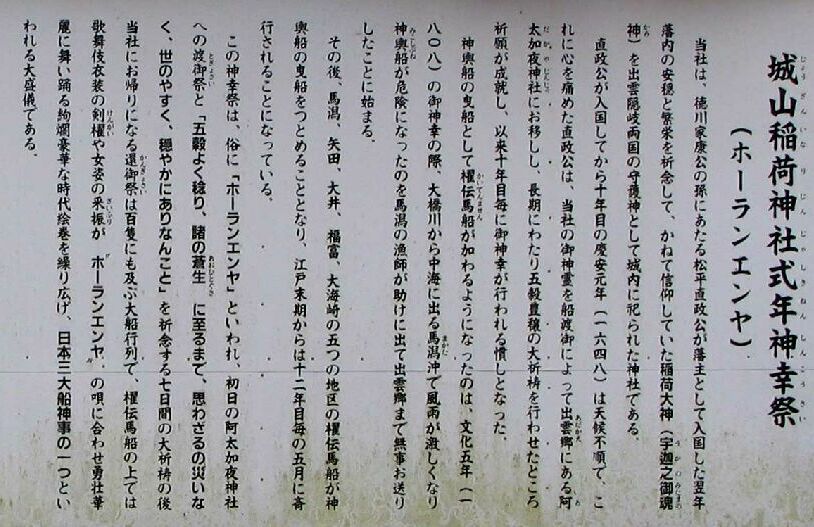 城山稲荷神社式年神幸祭
(ホーランエンヤ)
当社は、徳川家康公の孫にあたる松平直政公が藩主として入国した翌年
藩内の安穏と繁栄を祈念して、かねて信仰していた稲荷大神(宇迦之御魂
神)を出雲隠岐両国の守護神として城内に祀られた神社である。
直政公が入国してから十年目の慶安元年(一六四八)は天候不順で、こ
れに心を痛めた直政公は、当社の御神霊を船渡御によって出雲郷にある阿
太加夜神社にお移しし、長期にわたり五穀豊穣の大祈祷を行わせたところ
祈願が成就し、以来十年目毎に御神幸が行われる慣しとなった。
神輿船の曳船として櫂伝馬船が加わるようになったのは、文化五年(一
八〇八)の御神幸の際、大橋川から中海に出る馬潟沖で風雨が激しくなり
神輿船が危険になったのを馬潟の漁師が助けに出て出雲郷まで無事お送り
したことに始まる。
その後、馬潟、矢田、大井、福富、大海崎の五つの地区の櫂伝馬船が神
輿船の曳船をつとめることとなり、江戸末期からは十二年目毎の五月に斎
行されることになっている。
この神幸祭は、俗に「ホーランエンヤ」といわれ、初日の阿太加夜神社
への渡御祭と「五穀よく稔り、諸の蒼生 に至るまで、思わざるの災いな
く、世のやすく、穏やかにありなんこと」を祈念する七日間の大祈祷の後
当社にお帰りになる還御祭は百隻にも及ぶ大船行列で、櫂伝馬船の上では
歌舞伎衣装の剣櫂や女姿の采振が 〝ホーランエンヤ〟の唄に合わせ勇壮華
麗に舞い踊る絢爛豪華な時代絵巻を繰り広げ、日本三大船神事の一つとい
われる大盛儀である。